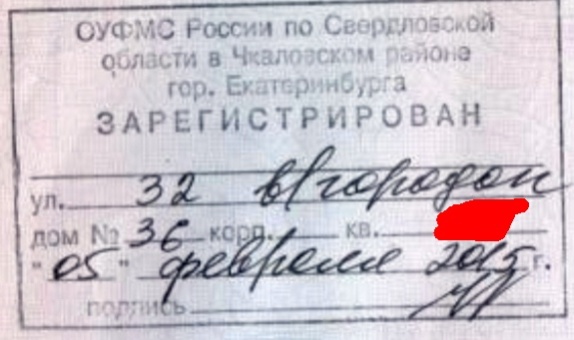 ОУФМС России по Свердловской
области в Чкаловском районе
гор. Екатеринбурга
ЗАРЕГИСТРИРОВАН
ул. 32 в/городок
дом № 36 корп. кв.
"05" февраля 2015 г.
подпись